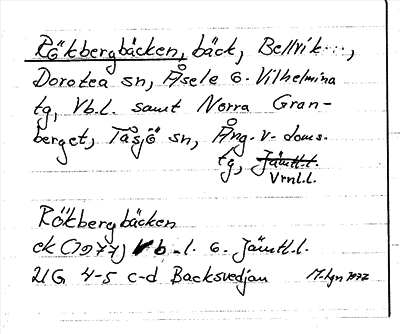 Rökbergbäcken, bäck, Bellvik...,
Dorotea sn, Åsele o. Vilhelmina
tg, Vb.l. samt Norra Gran-
berget, Tåsjö sn, Ång. v. doms.
tg, Jämtl.l.
Vrnl.l.
Rökbergbäcken
ek (1977) Vb.l. o. Jämtl.l.
21G 4-5 c-d Backsvedjan